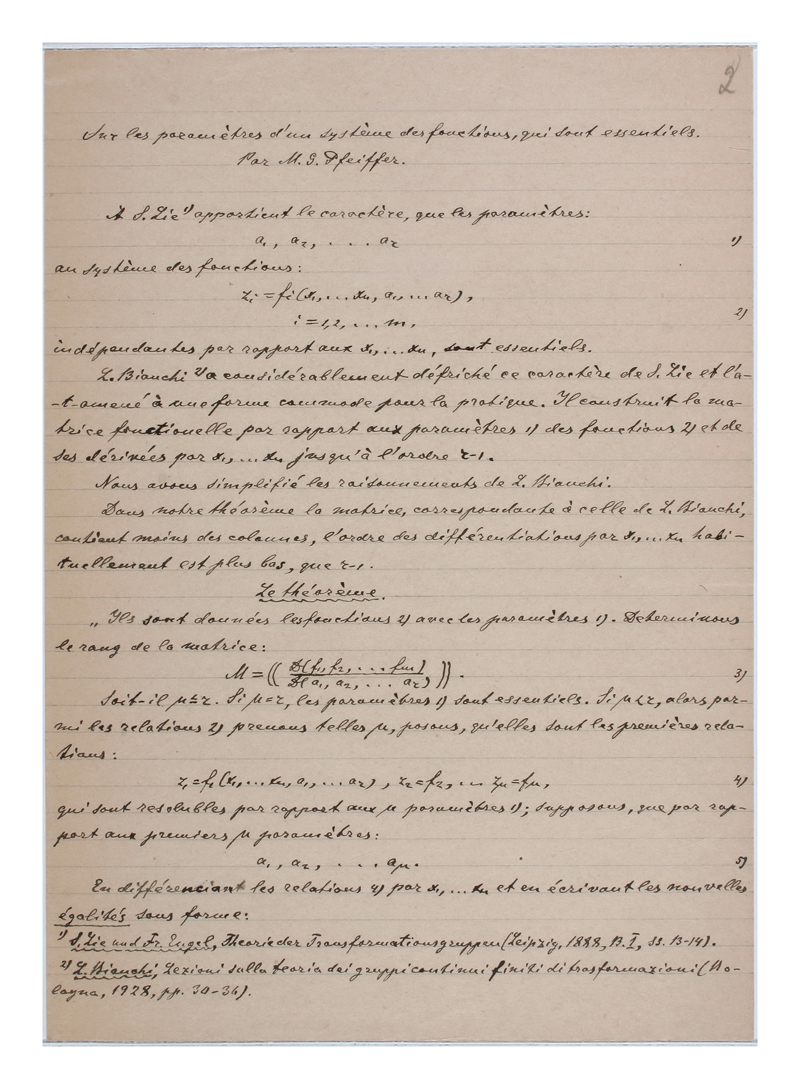 2
Sur les paramètres d'un système des fonctions, qui sont essentiels.
Par M. G. Pfeiffer.
A S. Lie ¹) appartient le caractère, que les paramètres:
a₁, a₂, . . . aᵣ 1)
au système des fonctions:
zᵢ = fᵢ(x₁, ... xₙ, a₁, ... aᵣ),
i = 1, 2, ... m, 2)
indépendantes par rapport aux x₁, ... xₙ, sont essentiels.
L. Bianchi ²) a considérablement défriché ce caractère de S. Lie et l'a-
-t-amené à une forme commode pour la pratique. Il construit la ma-
trice fonctionelle par rapport aux paramètres 1) des fonctions 2) et de
ses dérivées par x₁, ... xₙ jusqu'à l'ordre r-1.
Nous avons simplifié les raisonnements de L. Bianchi.
Dans notre théorème la matrice, correspondante à celle de L. Bianchi,
contient moins des colonnes, l'ordre des différentiations par x₁, ... xₙ habi-
tuellement est plus bas, que r-1.
Le théorème.
„Ils sont données les fonctions 2) avec les paramètres 1). Determinons
le rang de la matrice:
M = (( D(f₁, f₂, ... fₘ) / D(a₁, a₂, ... aᵣ) )) . 3)
Soit-il μ ≤ r. Si μ = r, les paramètres 1) sont essentiels. Si μ < r, alors par-
mi les relations 2) prenons telles μ, posons, qu'elles sont les premières rela-
tions:
z₁ = f₁(x₁, ... xₙ, a₁, ... aᵣ), z₂ = f₂, ... zμ = fμ, 4)
qui sont resolubles par rapport aux μ paramètres 1); supposons, que par rap-
port aux premiers μ paramètres:
a₁, a₂, . . . aμ. 5)
En différenciant les relations 4) par x₁, ... xₙ et en écrivant les nouvelles
égalités sous forme:
¹) S. Lie und Fr. Engel, Theorie der Transformationsgruppen (Leipzig, 1888, B. I, ss. 13-14).
²) L. Bianchi, Lezioni sulla teoria dei gruppi continui finiti di trasformazioni (Bo-
logna, 1928, pp. 30-36).